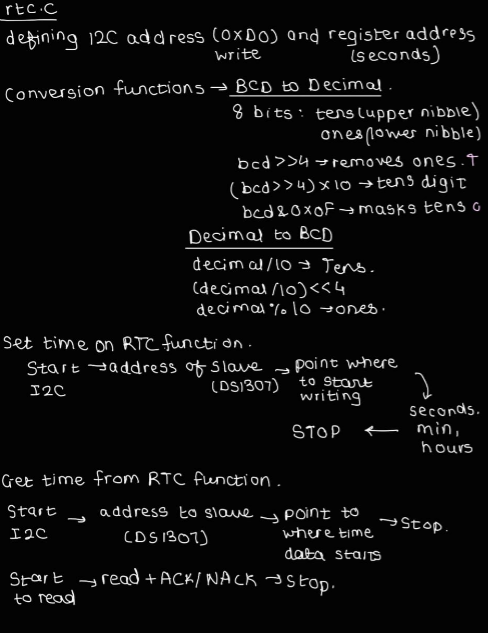 rtc.c
defining I2C address (0xD0) and register address
write (seconds)
Conversion functions → BCD to Decimal.
8 bits: tens (upper nibble)
ones (lower nibble)
bcd>>4 → removes ones. T
(bcd>>4) x 10 → tens digit
bcd & 0x0F → masks tens O
Decimal to BCD
decimal/10 → Tens.
(decimal/10)<<4
decimal % 10 → ones.
Set time on RTC function.
Start → address of slave → point where
I2C (DS1307) to start
writing
seconds.
STOP ← min,
hours
Get time from RTC function.
Start → address to slave → point to → Stop.
I2C (DS1307) where time
data starts
Start → read + ACK/NACK → Stop.
to read